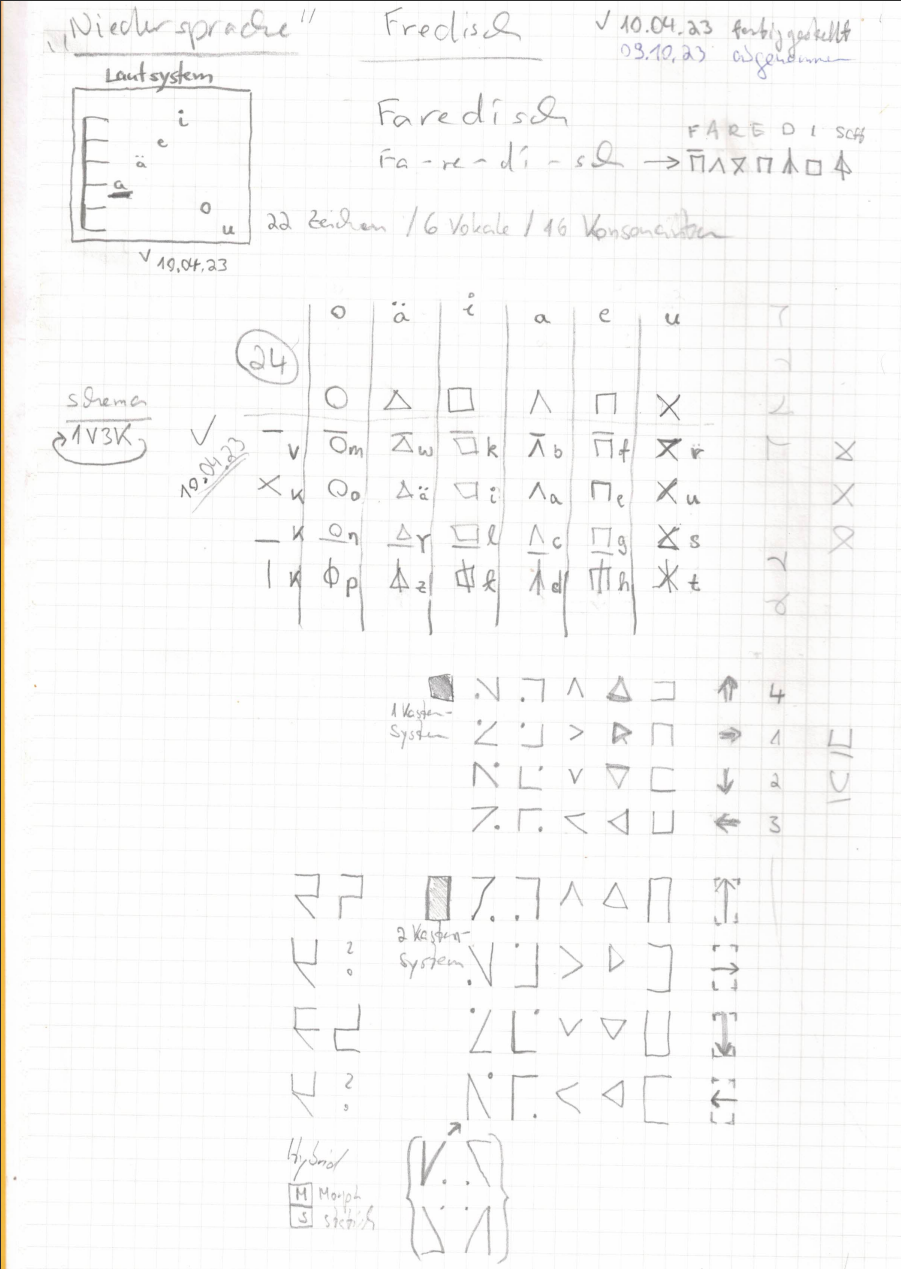 „Niedersprache“ Fredisch ✓ 10.04.23 fertiggestellt
09.10.23 abgenommen
Lautsystem
i
e
ä
a
o
u
✓ 10.04.23
Faredisch
F A R E D I SCH
Fa-re-di-sch →
22 Zeichen / 6 Vokale / 16 Konsonanten
o ä i a e u
24
Schema
1V3K
✓ 10.04.23
V m w k b f r
K o ä i a e u
K n y l c g s
K p z t d h t
1 Kasten-
System
4
1
2
3
2 Kasten-
System
Hybrid
M Morph
S statisch